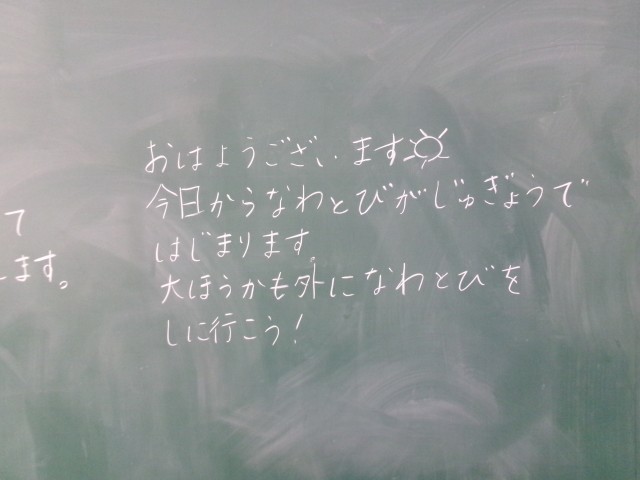 て
します。
おはようございます
今日からなわとびがじゅぎょうで
はじまります。
大ほうかも外になわとびを
しに行こう！